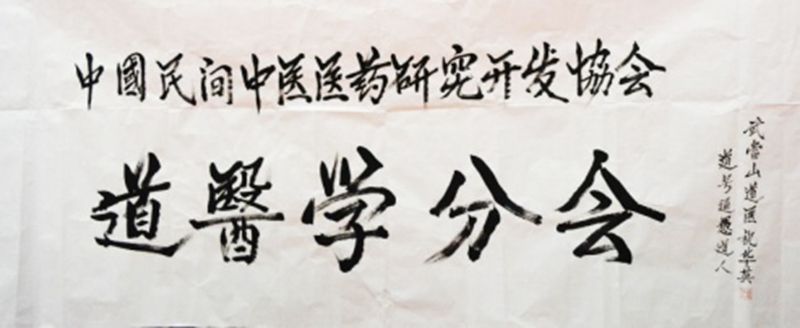 中國民间中医医药研究开发協会
道醫学分会
武当山道医祝华英
道号道愚道人